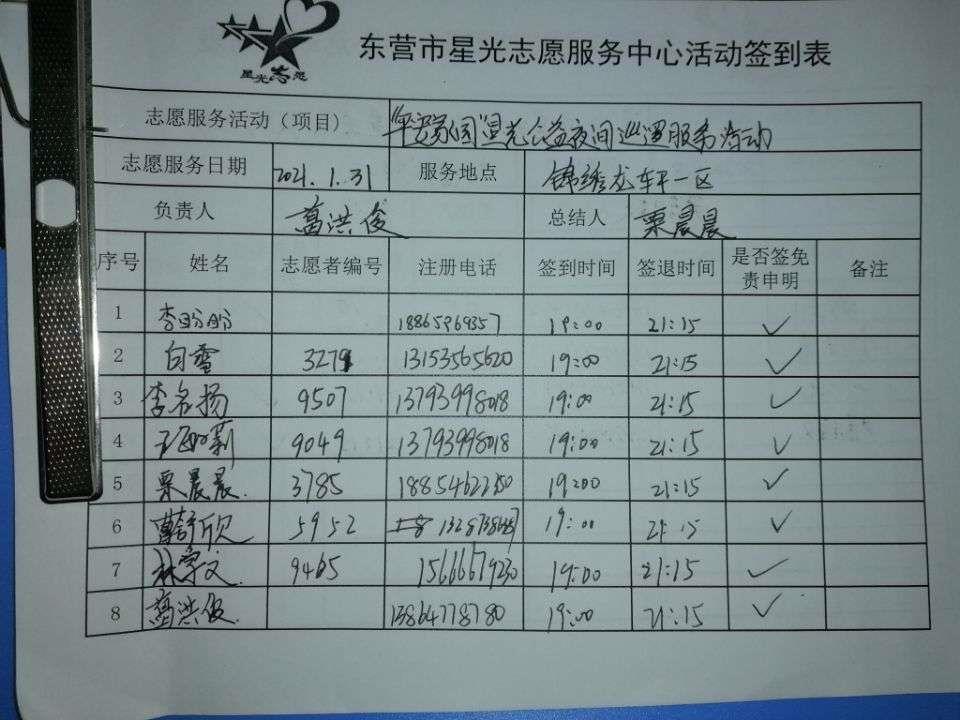 星光志愿
东营市星光志愿服务中心活动签到表
志愿服务活动（项目） "平安家园"星光公益夜间巡逻服务活动
志愿服务日期 2021.1.31 服务地点 锦绣龙轩一区
负责人 葛洪俊 总结人 栗晨晨
序号 姓名 志愿者编号 注册电话 签到时间 签退时间 是否签免责申明 备注
1 李盼盼 18865969357 19:00 21:15 ✓
2 白雪 3279 13153565620 19:00 21:15 ✓
3 李名扬 9507 13793998018 19:00 21:15 ✓
4 9049 13793998018 19:00 21:15 ✓
5 栗晨晨. 3785 19:00 21:15 ✓
6 5952 19:00 21:15 ✓
7 林学文. 9465 15666679230 19:00 21:15 ✓
8 葛洪俊. 13864778780 19:00 21:15 ✓